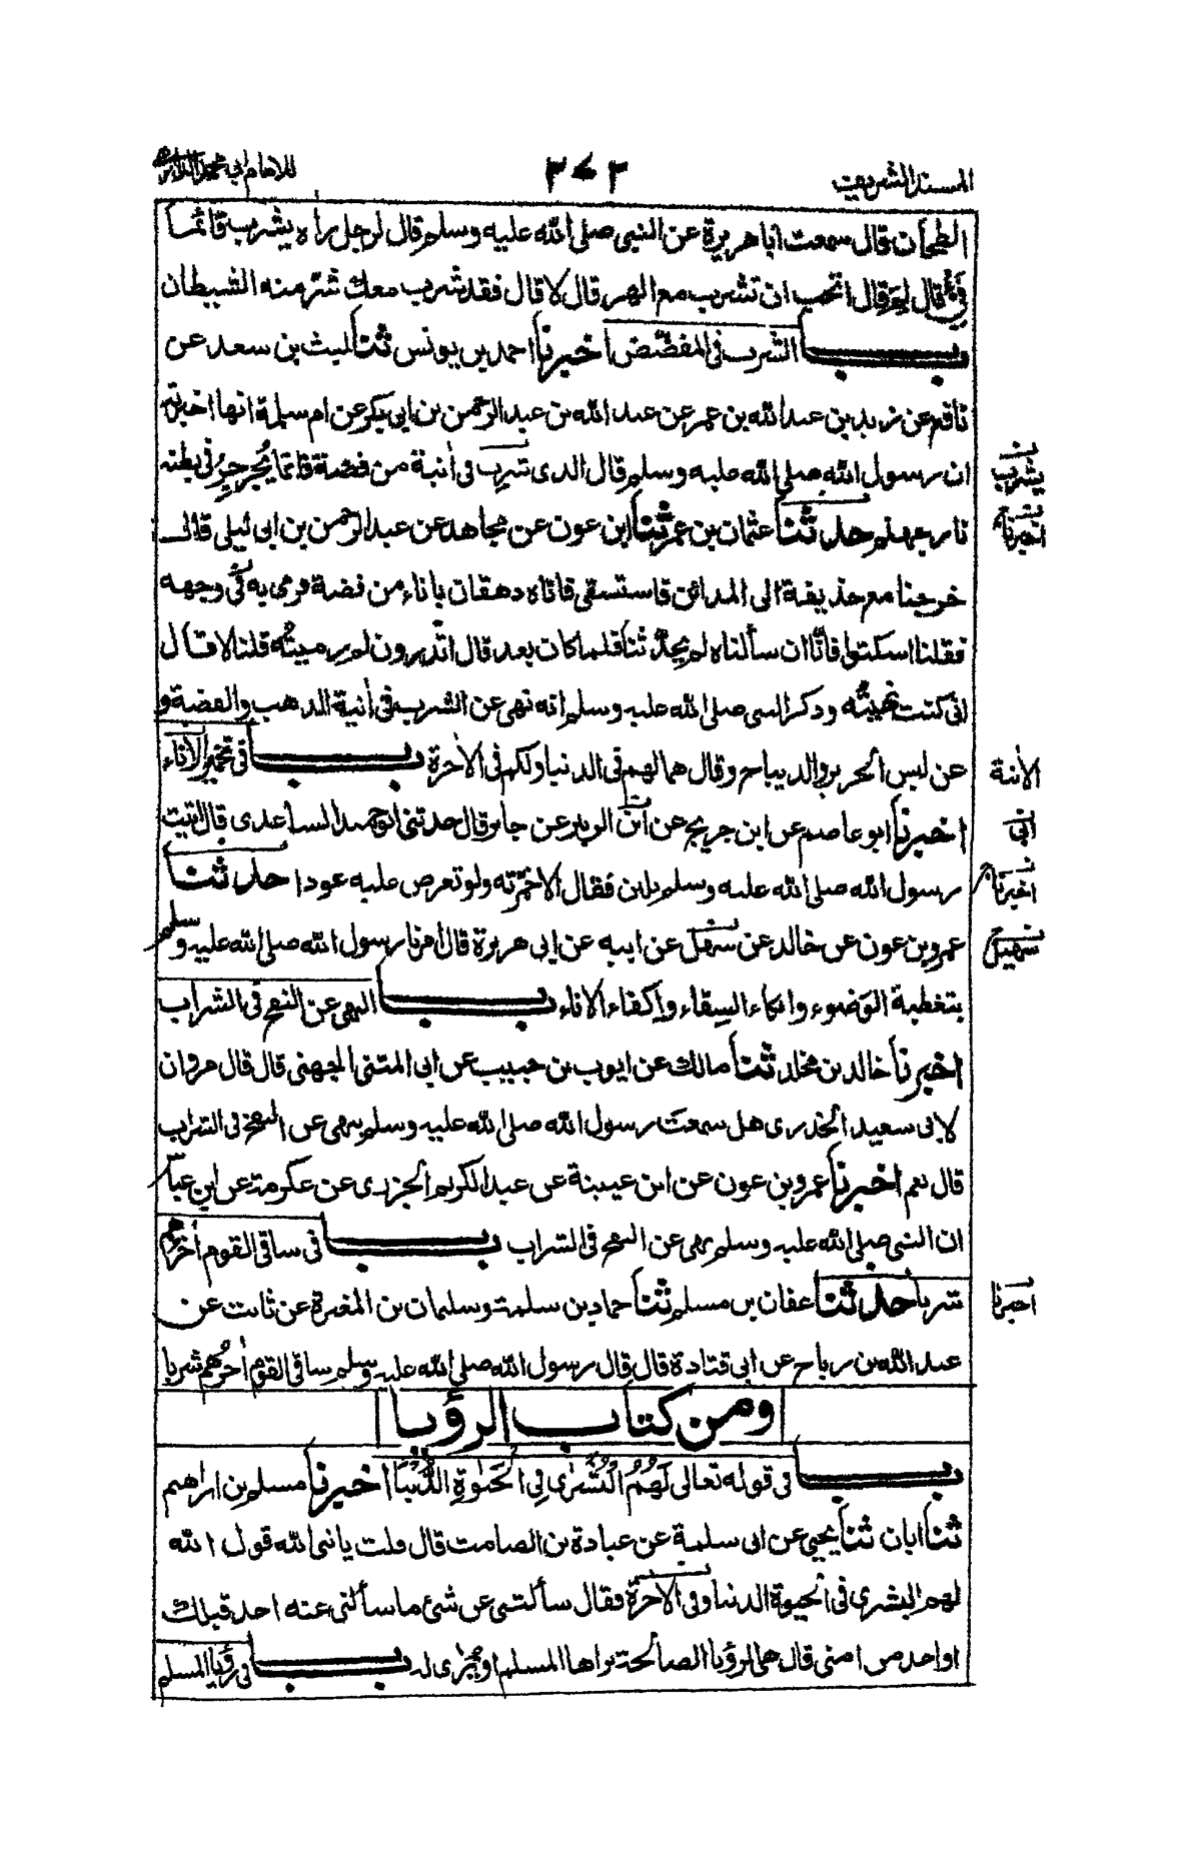 المسند الشريف
٢٧٢
للامام ابى محمد الدارمى
الطحان قال سمعت ابا هريرة عن النبى صلى الله عليه وسلم قال لرجل رأه يشرب قائما
قئ قال لم قال اتحب ان تشرب مع الهر قال لا قال فقد شرب معك شر منه الشيطان
باب الشرب فى المفضض اخبرنا احمد بن يونس ثنا ليث بن سعد عن
نافع عن زيد بن عبد الله بن عمر عن عبد الله بن عبد الرحمن بن ابى بكر عن ام سلمة انها اخبرته
ان رسول الله صلى الله عليه وسلم قال الذى شرب فى أنية من فضة فانما يُجرجِرُ فى بطنه
نار جهنم حدثنا عثمان بن عمر ثنا ابن عون عن مجاهد عن عبد الرحمن بن ابى ليلى قال
خرجنا مع حذيفة الى المدائن فاستسقى فاتاه دهقان باناء من فضة فرمى به فى وجهه
فقلنا اسكتوا فانّا ان سألناه لم يحدّثنا فلما كان بعد قال اتدرون لم رميتُه قلنا لا قال
انى كنت نهيتُه وذكر النبى صلى الله عليه وسلم انه نهى عن الشرب فى أنية الذهب والفضة و
عن لبس الحرير والديباج وقال هما لهم فى الدنيا ولكم فى الأخرة باب فى تخمير الاناء
اخبرنا ابو عاصم عن ابن جريج عن ابن الزبير عن جابر قال حدثنى ابو حميد الساعدى قال اتيت
رسول الله صلى الله عليه وسلم بلبن فقال الا خمّرته ولو تعرض عليه عودا حدثنا
عمرو بن عون عن خالد عن سهل عن ابيه عن ابى هريرة قال امرنا رسول الله صلى الله عليه وسلم
بتغطية الوَضوء وايكاء السِقاء واِكفاء الاناء باب النهى عن النفخ فى الشراب
اخبرنا خالد بن مخلد ثنا مالك عن ايوب بن حبيب عن ابى المثنى الجهنى قال قال مروان
لابى سعيد الخدرى هل سمعت رسول الله صلى الله عليه وسلم ينهى عن النفخ فى الشراب
قال نعم اخبرنا عمرو بن عون عن ابن عيينة عن عبد الكريم الجزرى عن عكرمة عن ابن عباس
ان النبى صلى الله عليه وسلم نهى عن النفخ فى الشراب باب فى ساقى القوم أخرهم
شربا حدثنا عفان بن مسلم ثنا حماد بن سلمة وسليمان بن المغيرة عن ثابت عن
عبد الله بن رباح عن ابى قتادة قال قال رسول الله صلى الله عليه وسلم ساقى القوم أخرُهم شربا
ومن كتاب الرؤيا
باب فى قوله تعالى لَهُمُ الْبُشْرٰى فِى الْحَيٰوةِ الدُّنْيَا اخبرنا مسلم بن ابراهيم
ثنا ابان ثنا يحيى عن ابى سلمة عن عبادة بن الصامت قال قلت يا نبى الله قول الله
لهم البشرى فى الحيوة الدنيا وفى الأخرة فقال سألتنى عن شئ ما سألنى عنه احد قبلك
او احد من امتى قال هى الرؤيا الصالحة يراها المسلم او تُرٰى له باب فى رؤيا المسلم
يشرب
اخبرنا
الأنية
ابى
اخبرنا
سهيل
اخبرنا